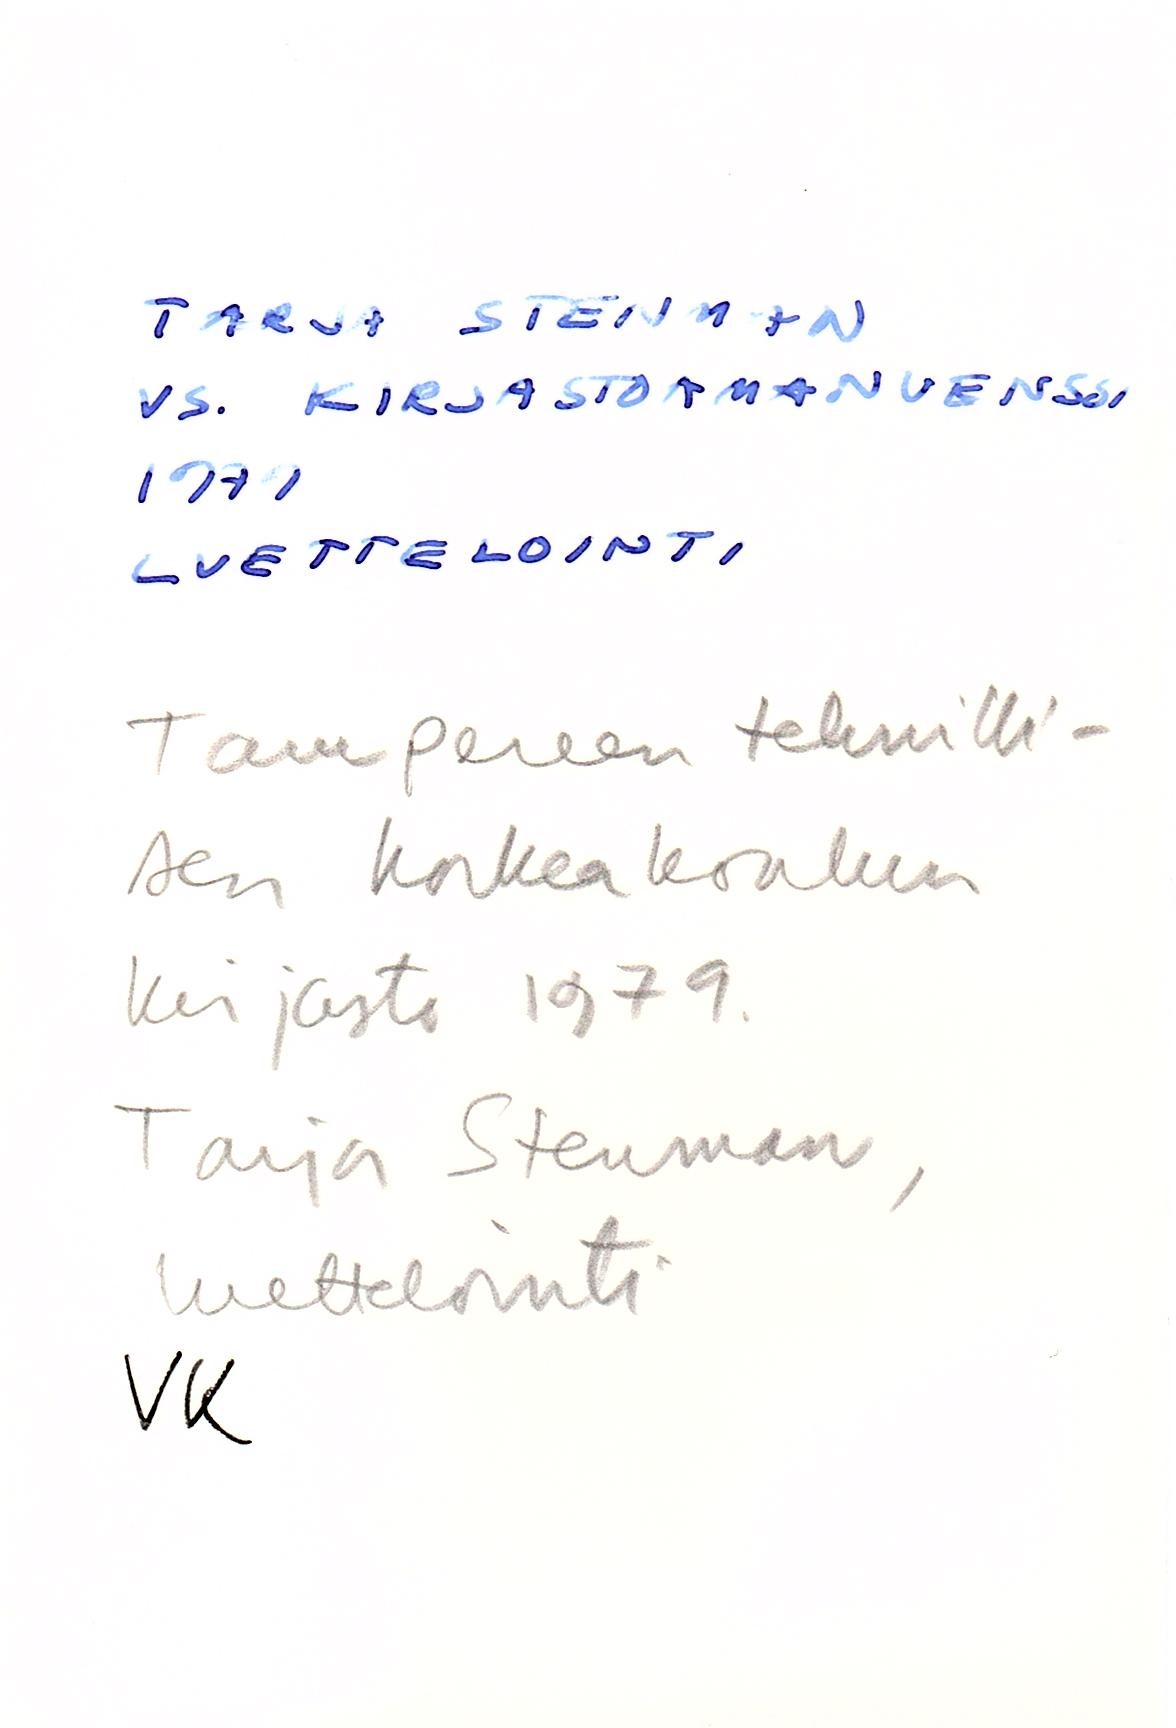 TARJA STENMAN
VS. KIRJASTOAMANUENSSI
1979
LUETTELOINTI
Tampereen teknilli-
sen korkeakoulun
kirjasto 1979.
Tarja Stenman,
luettelointi
VK